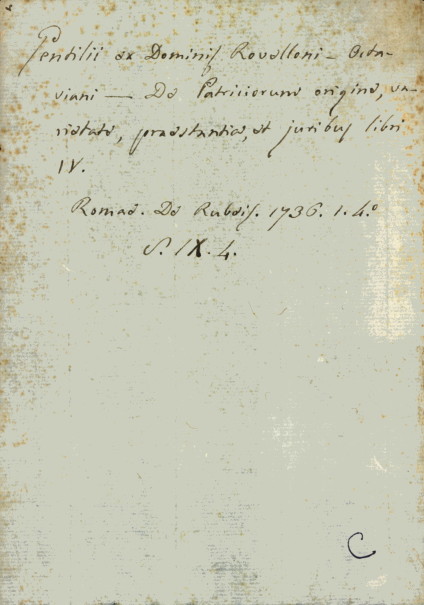 Gentilii ex Dominis Rovelloni - Octa-
viani — De Patriciorum origine, va-
rietate, praestantia, et juribus libri
IV.
Romae. De Rubeis. 1736. 1. 4.°
S. IX. 4.
C